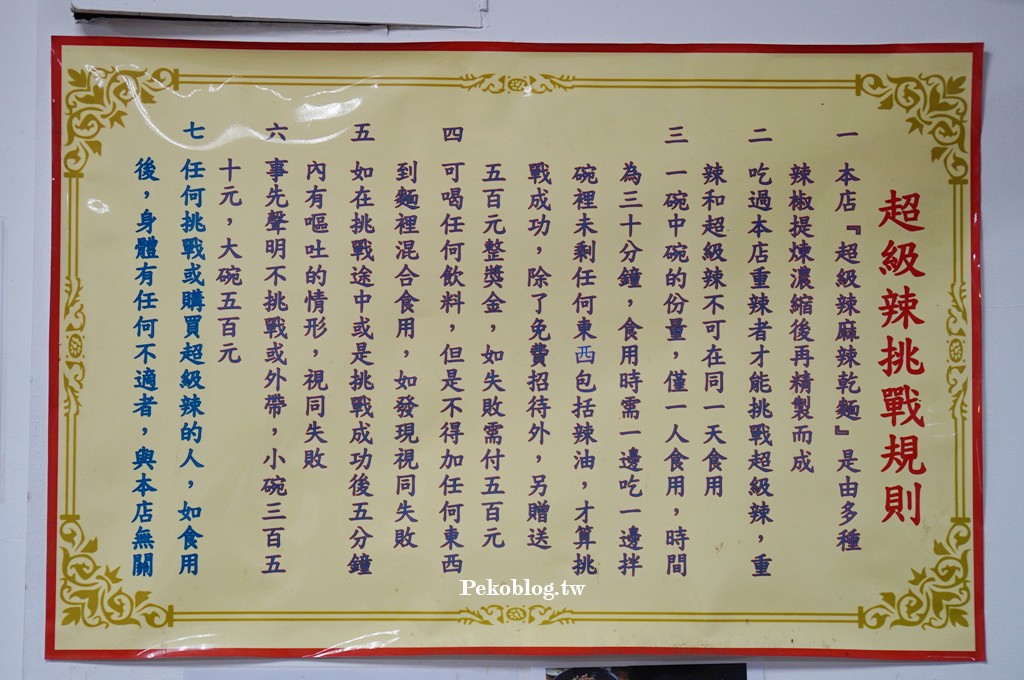 超級辣挑戰規則
一 本店『超級辣麻辣乾麵』是由多種
辣椒提煉濃縮後再精製而成
二 吃過本店重辣者才能挑戰超級辣，重
辣和超級辣不可在同一天食用
三 一碗中碗的份量，僅一人食用，時間
為三十分鐘，食用時需一邊吃一邊拌
碗裡未剩任何東西包括辣油，才算挑
戰成功，除了免費招待外，另贈送
五百元整獎金，如失敗需付五百元
四 可喝任何飲料，但是不得加任何東西
到麵裡混合食用，如發現視同失敗
五 如在挑戰途中或是挑戰成功後五分鐘
內有嘔吐的情形，視同失敗
六 事先聲明不挑戰或外帶，小碗三百五
十元，大碗五百元
七 任何挑戰或購買超級辣的人，如食用
後，身體有任何不適者，與本店無關
Pekoblog.tw